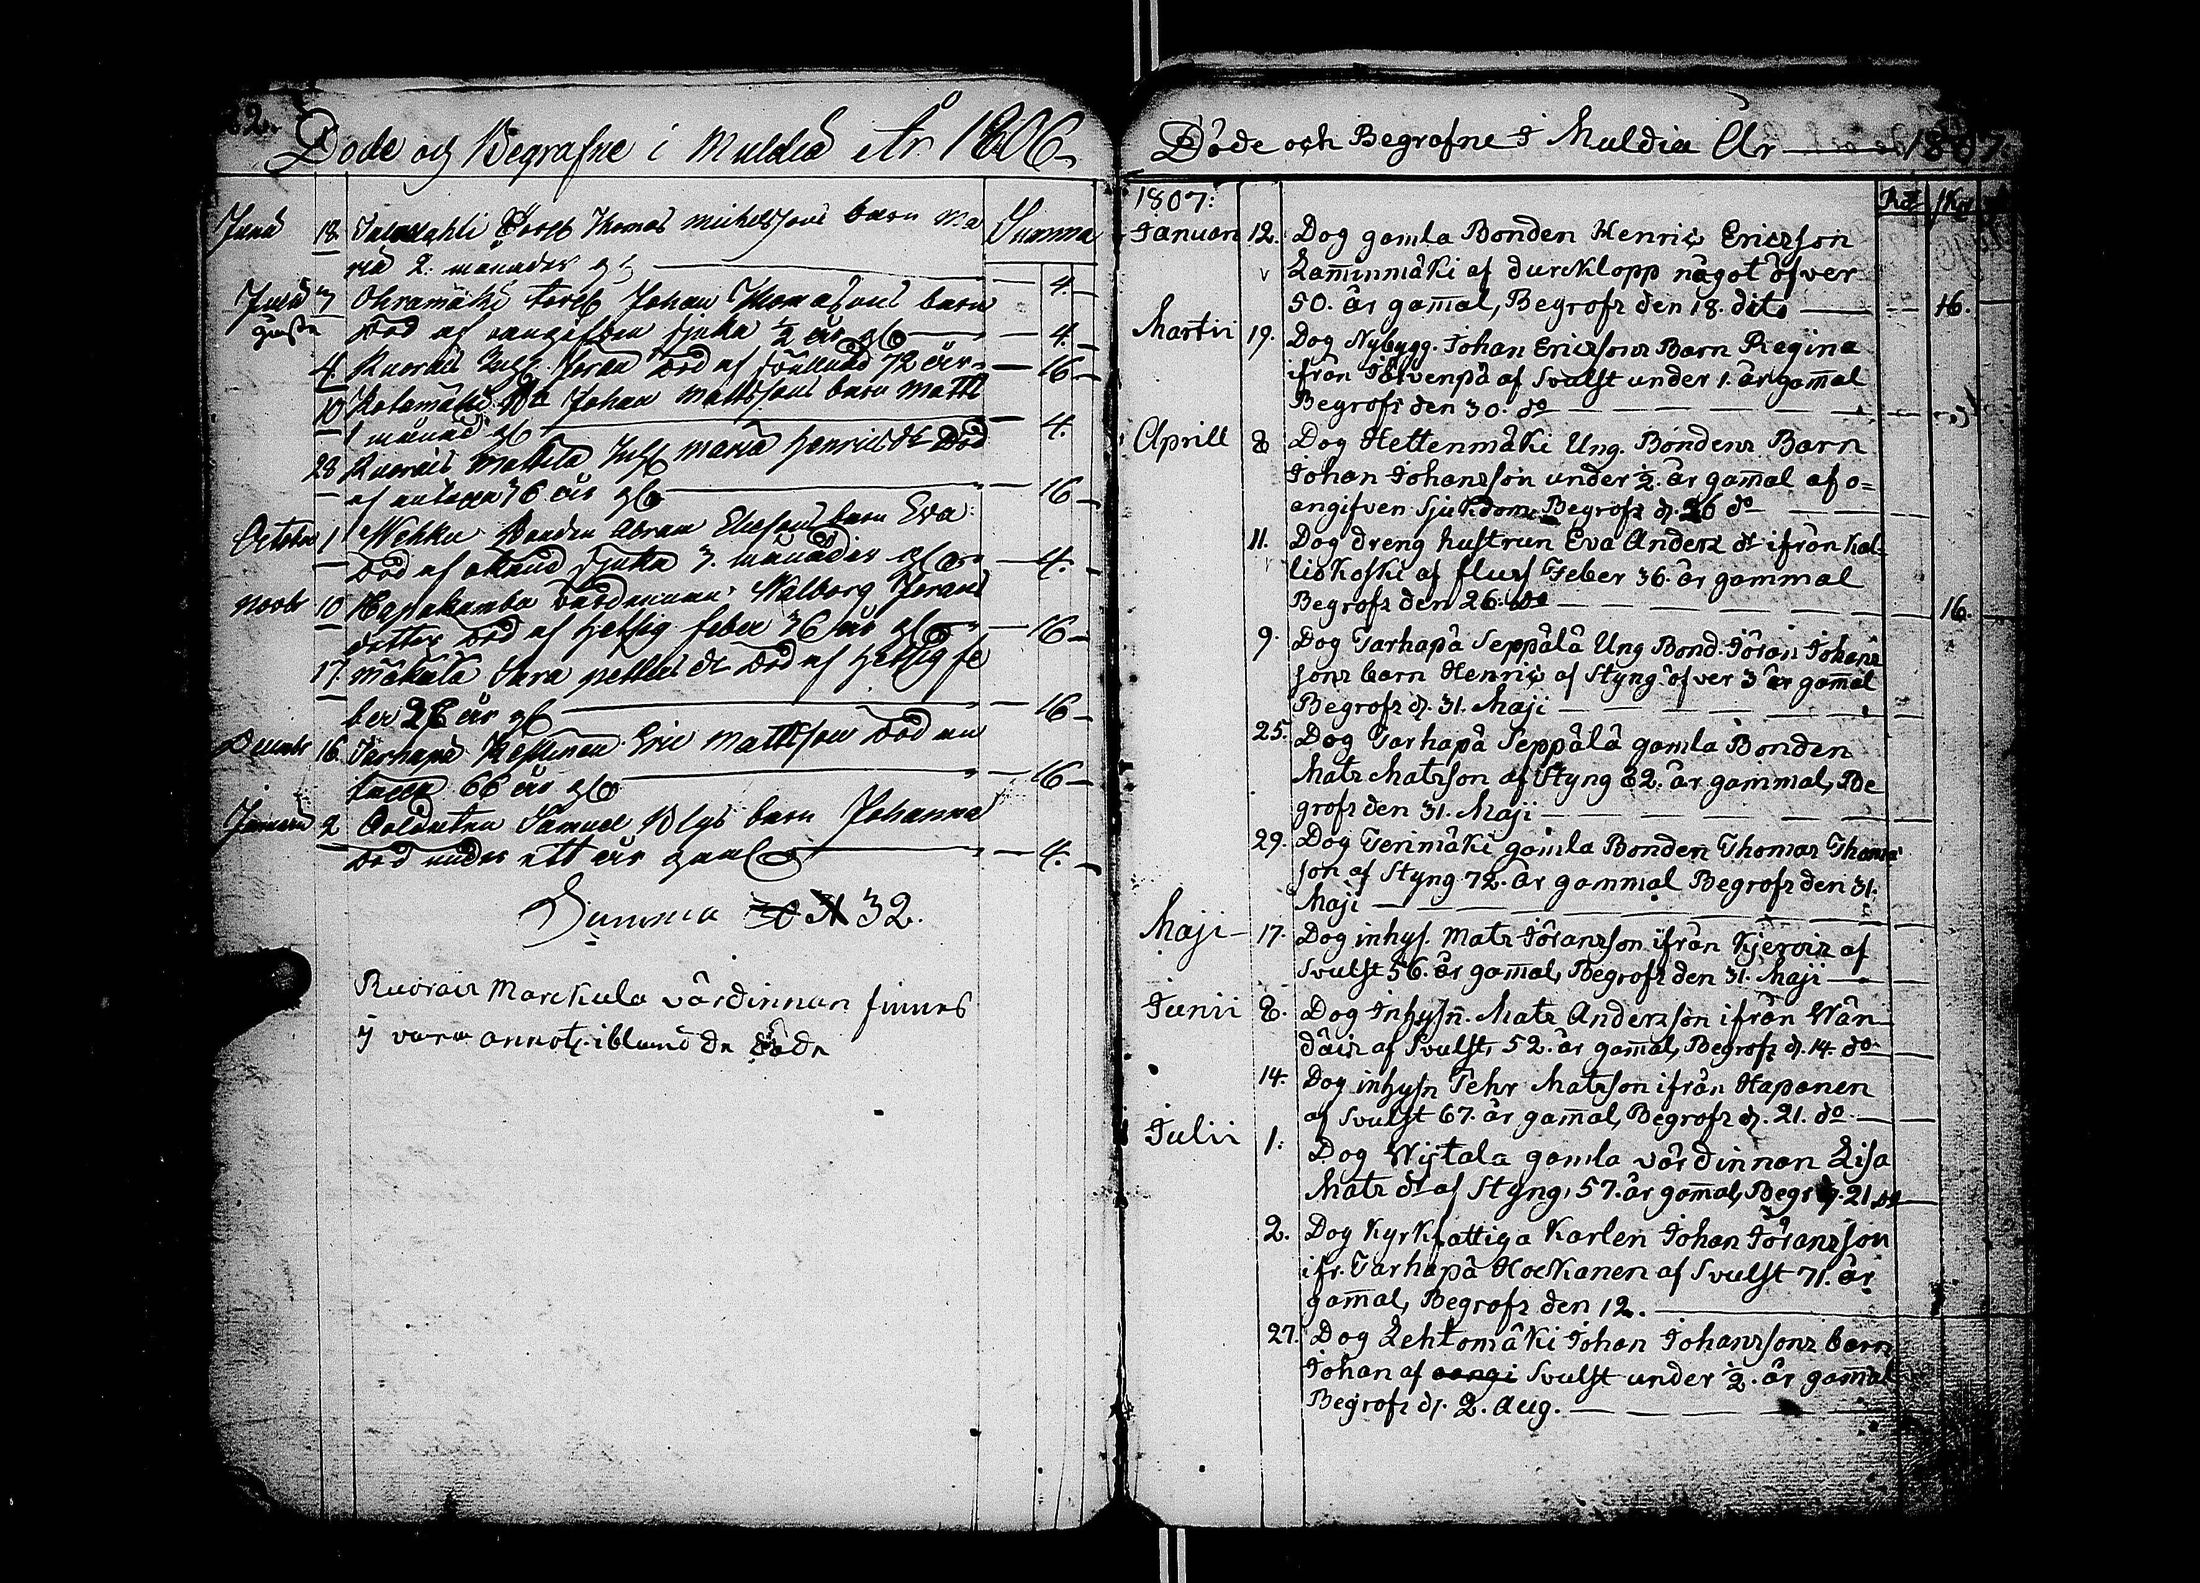 Döde och Begrafne i Muldia År 1806
Summa
Junii 18. Torp. Thomas Michelssons barn Ma
ria 2. månader gl 4.
Julii 7 Ohramäki torp. Johan Thomassons barn
död af oangifven sjuka ½ år gl 4.
4. Ruovais Inh. Jöran död af 72 år 16
10 Johan Mattssons barn Matts
1 månad gl 4.
28 Ruovais Mattila Inh. Maria Henrics dr död
af 76 år gl 16
October 1 Wehku Bonden Abram barn Eva
död af okänd sjuka 3. månader gl 4.
Novbr 10 Hapakamba värdinnan Walborg Jörans
dotter död af hetsig feber 36 år gl 16
17. Mäkälä Sara Petters dr död af hetsig fe
ber år gl 16
Decembr 16. Tarhapä Eric Mattsson död an
tagen 66 år gl 16
Januarii 2 Soldaten Samuel barn Johanna
död under ett år gaml 4.
Summa 30 31 32.
Ruovais Marckula värdinnan finnes
ej vara annot. ibland de döde
Döde och Begrafne I Muldia År 1807.
1807. Rd
Januari 12. Dog gamla Bonden Henric Ericzson
Lamminmäki af durcklopp något öfver
50. år gamal, Begrofz den 18. dito 16.
Martii 19. Dog Nybygg. Johan Ericzsonz Barn Regina
ifrån Järvenpä af Svulst under 1. år gamal
Begrofz den 30. do
Aprill 8 Dog Hettenmäki Ung. Bondenz Barn
Johan Johanzson under ½. år gamal af o=
angifven Sjukdom Begrofz d. 26 do
11. Dog dreng hustrun Eva Anderz dr ifrån Kal=
liokoski af fluss Feber 36. år gammal
Begrofz den 26. do 16.
9. Dog Tarhapä Seppälä Ung Bond. Jöran Johanz
sonz barn Henric af Styng öfver 3 år gamal
Begrofz d. 31. Maji
25. Dog Tarhapä Seppälä gamla Bonden
Matz Matzson af Styng 82. år gammal, Be
grofz den 31. Maji
29. Dog Terinmäki gamla Bonden Thomaz Thomaz
son af Styng 72. år gammal Begrofz den 31.
Maji
Maji 17. Dog inhys. Matz Jöranzson ifrån Kjervoiz af
Svulst 56. år gamal, Begrofz den 31. Maji
Junii 8. Dog Inhysn. Matz Anderzson ifrån Wän
däiz af Svulst, 52. år gamal, Begrofz d. 14. do
14. Dog inhysn Pehr Matzson ifrån Haponen
af Svulst 67. år gamal, Begrofz d. 21. do
Julii 1. Dog Wijtala gamla värdinnan Lisa
Matz dr af Styng, 57. år gamal, Begr d. 21 do
2. Dog Kyrkfattiga Karlen Johan Jöranzson
ifr. Tarhapä Hockanen af Svulst 71. år
gamal, Begrofz den 12.
27. Dog Lehtomäki Johan Johanzsonz barn
Johan af oangi Svulst under ½. år gamal
Begrofz d. 2. Aug.